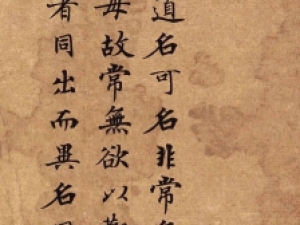 道名可名非常名
母故常無欲以觀
者同出而異名同